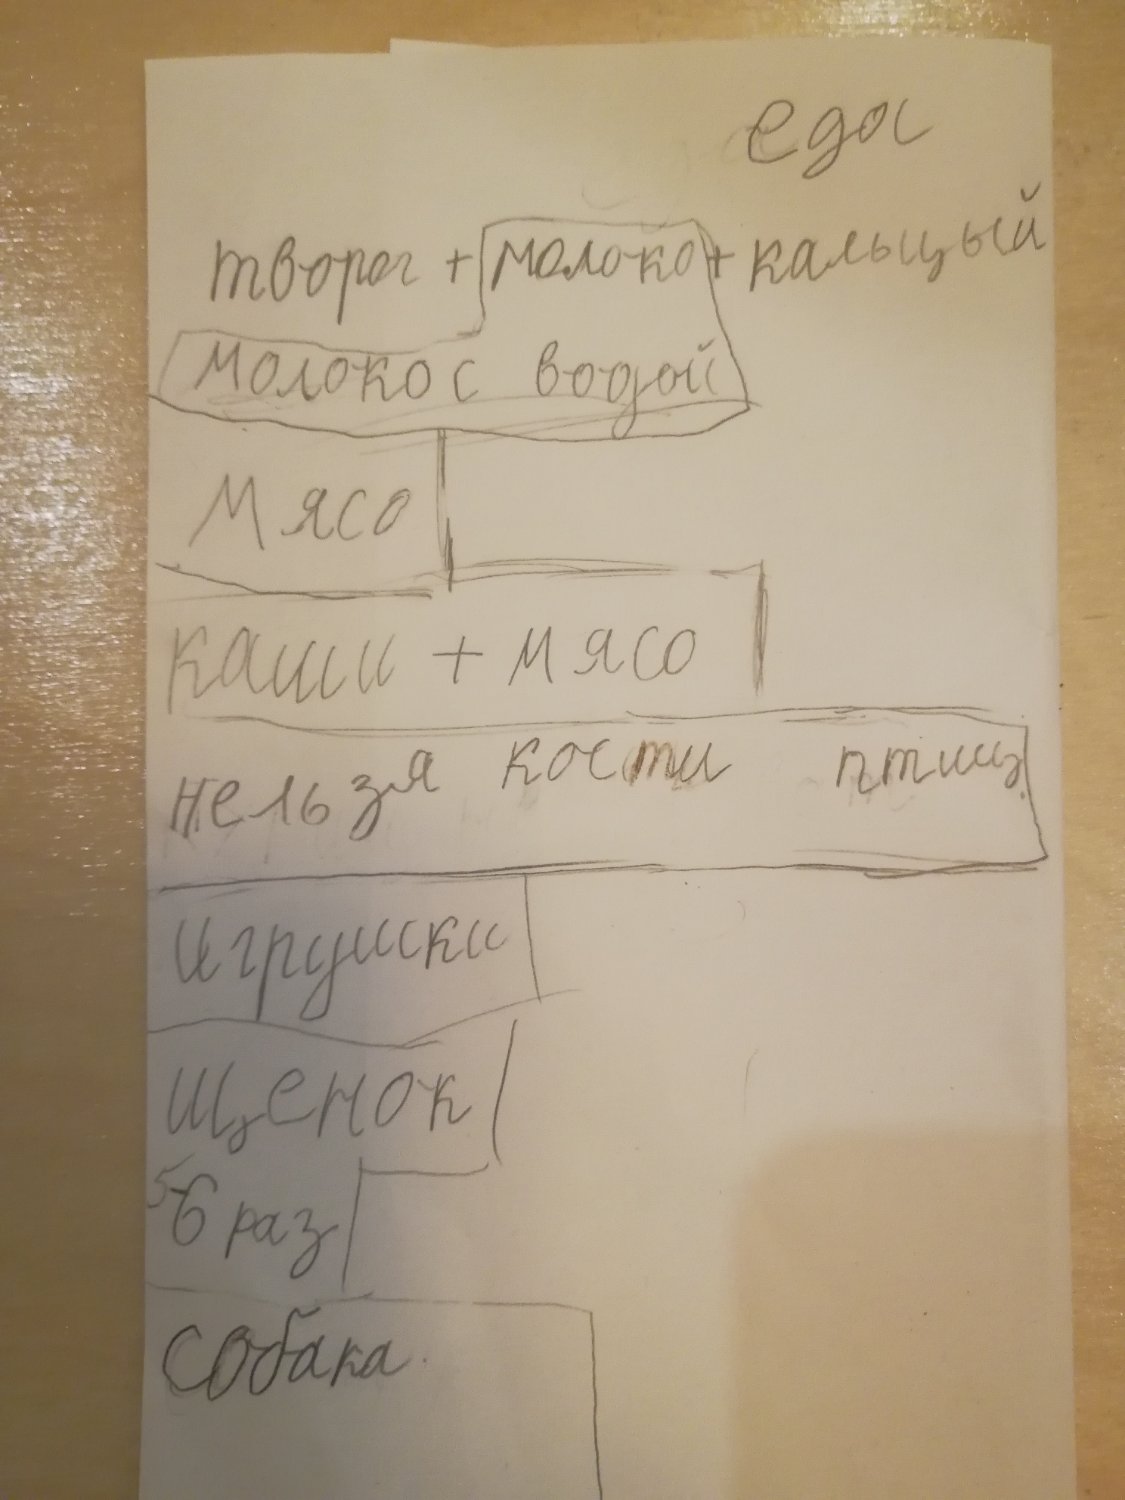 еда
творог + молоко + кальцый
молоко с водой
мясо
каши + мясо
нельзя кости птиц.
игрушки
щенок
5 6 раз
собака.